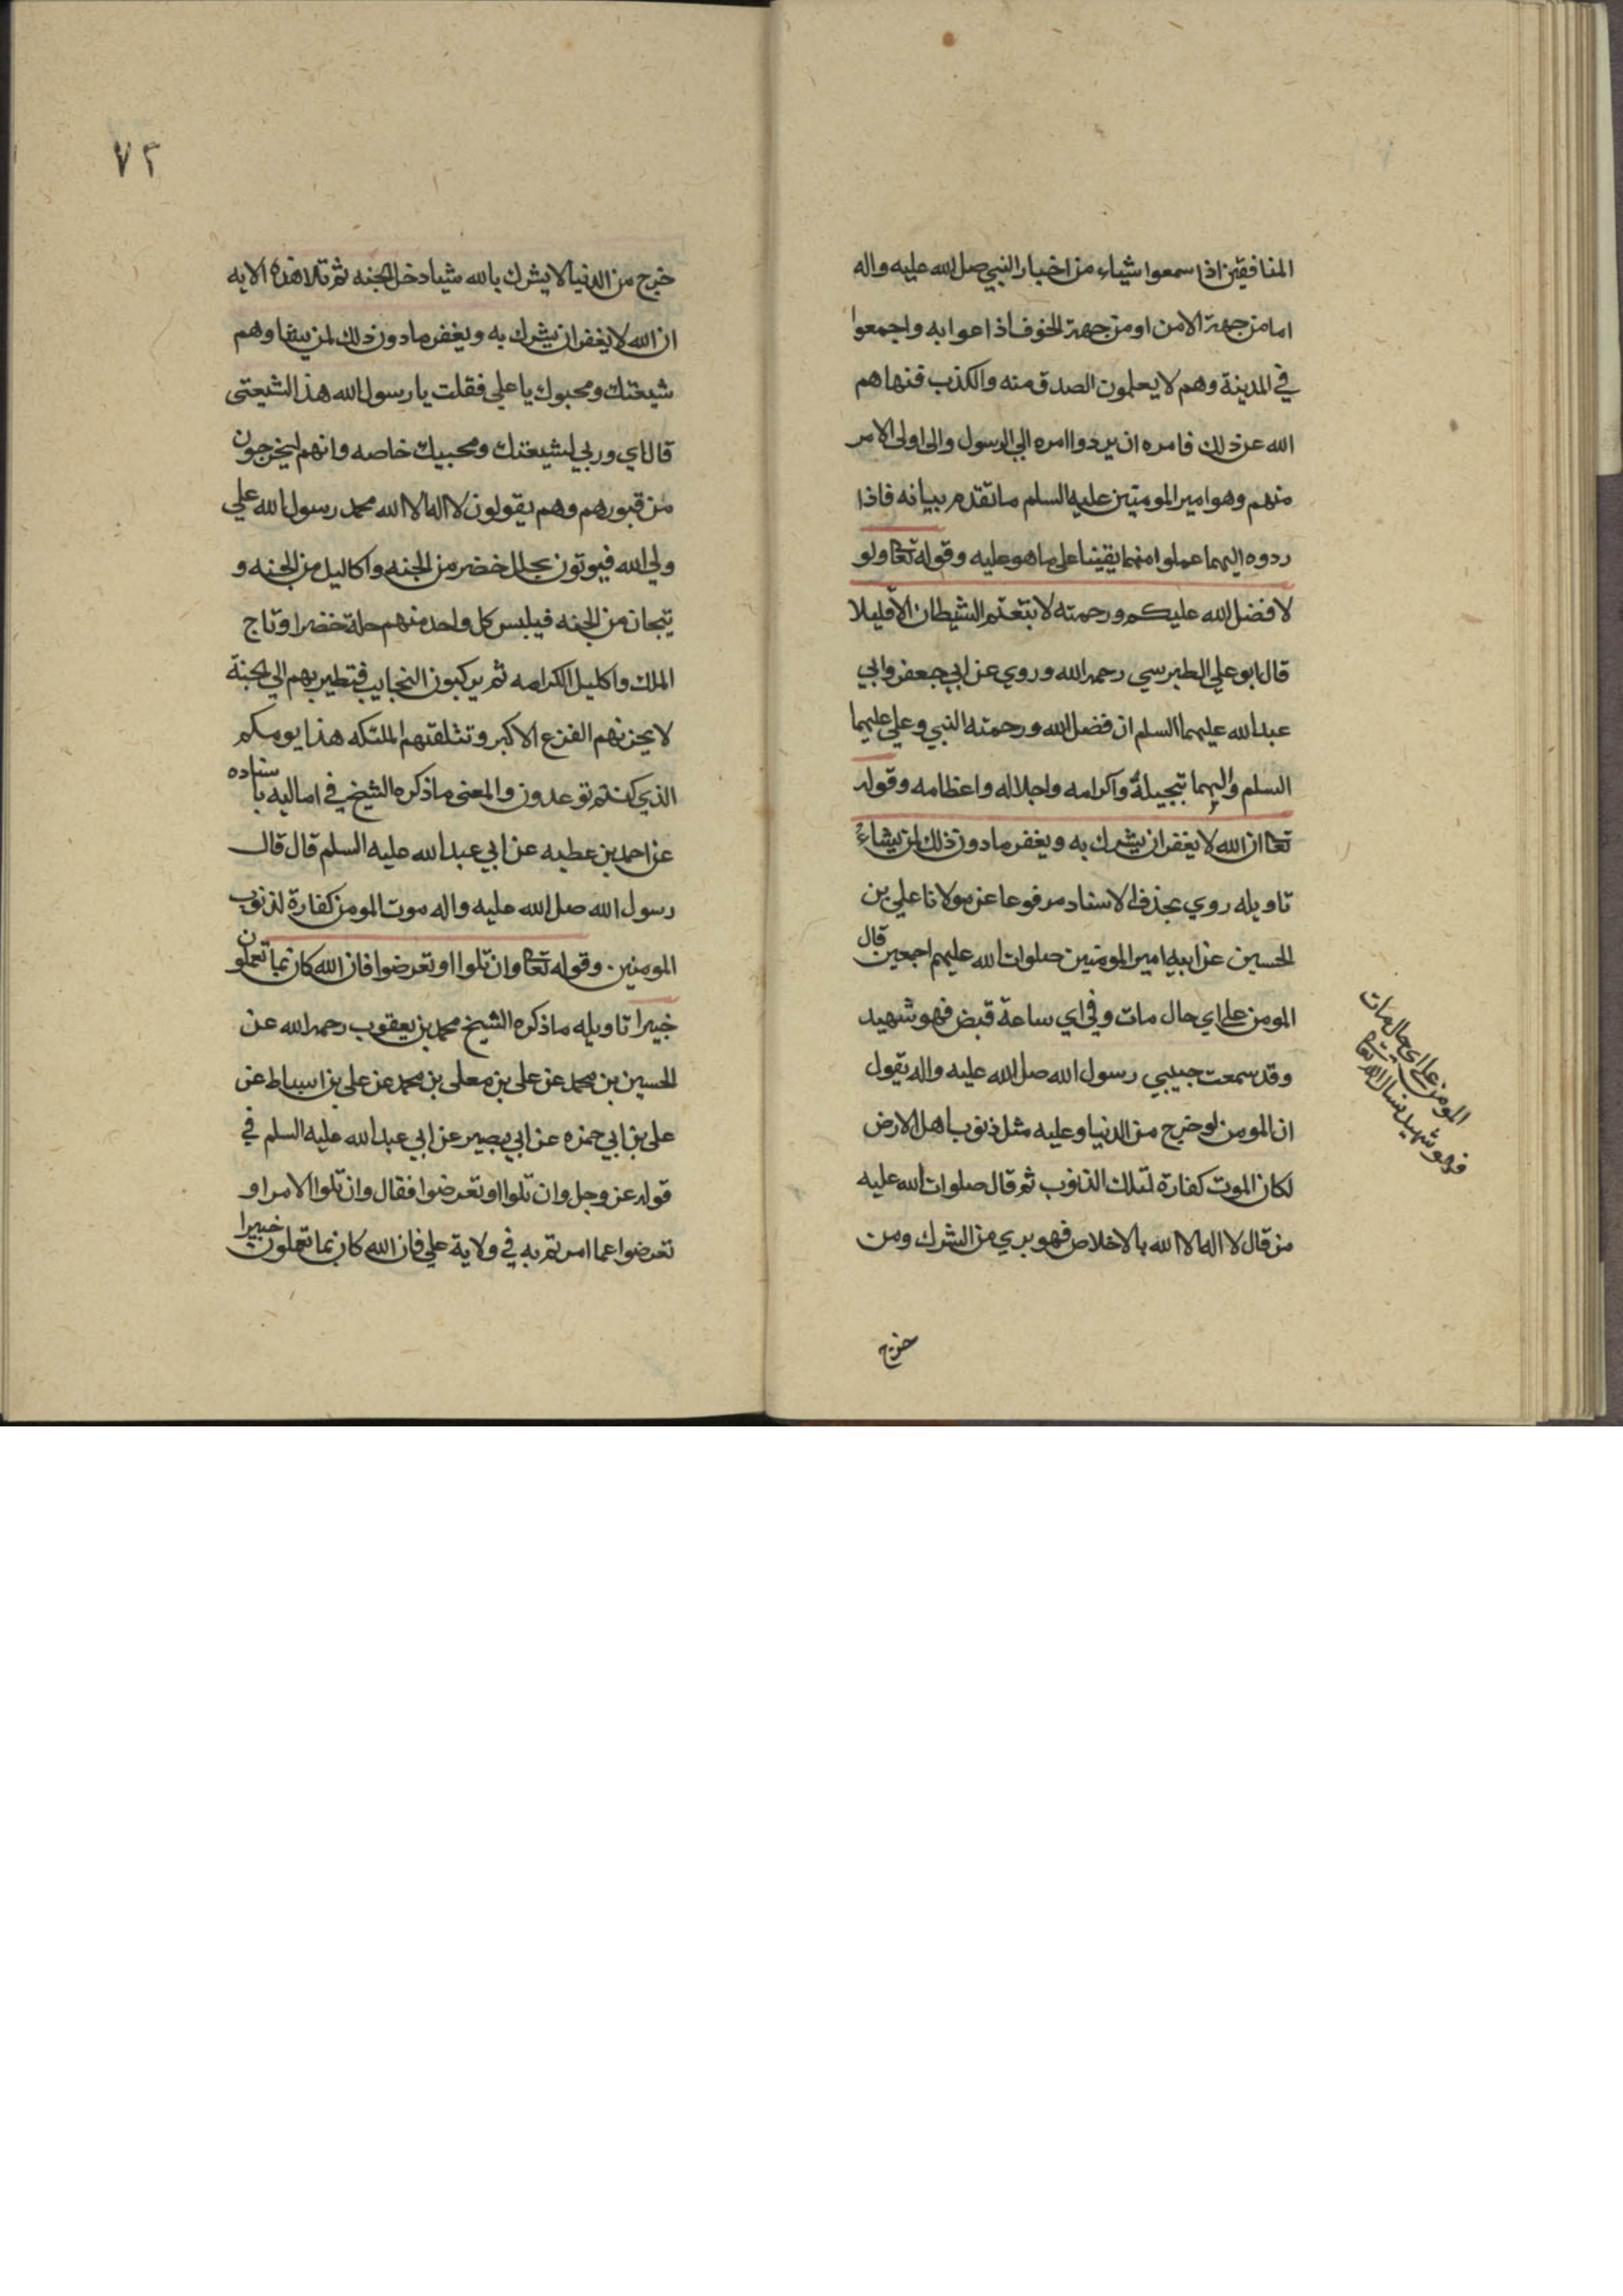 المنافقين اذا سمعوا شياء من اخبار النبي صل الله عليه واله
اما من جهة الامن او من جهة الخوف اذاعوا به واجمعوا
في المدينة وهم لا يعلمون الصدق منه والكذب فنهاهم
الله عن ذلك فامره ان يردوا امره الي الرسول والى اولى الامر
منهم وهو امير المومنين عليه السلم ما تقدم بيانه فاذا
ردوه اليهما عملوا منهما يقينا على ما هو عليه وقوله تعا ولو
لا فضل الله عليكم ورحمته لا تبعتم الشيطان الا قليلا
قال ابو علي الطبرسي رحمه الله وروي عن ابي جعفر وابي
عبد الله عليهما السلم ان فضل الله ورحمته النبي وعلي عليهما
السلم واليهما تبجيلة واكرامه واجلاله واعظامه وقوله
تعا ان الله لا يغفر ان يشرك به ويغفر ما دون ذلك لمن يشاء
تاويله روي بحذف الاسناد مرفوعا عن مولانا علي بن
الحسين عن ابيه امير المومنين صلوات الله عليهم اجمعين قال
المومن على اي حال مات وفي اي ساعة قبض فهو شهيد
وقد سمعت حبيبي رسول الله صل الله عليه واله يقول
ان المومن لو خرج من الدنيا وعليه مثل ذنوب اهل الارض
لكان الموت كفارة لتلك الذنوب ثم قال صلوات الله عليه
من قال لا اله الا الله بالاخلاص فهو بري من الشرك ومن
خرج
المومن على اي حال مات
فهو شهيد
٧٢
خرج من الدنيا لا يشرك بالله شيا دخل الجنه ثم تلا هذه الايه
ان الله لا يغفر ان يشرك به ويغفر ما دون ذلك لمن يشا وهم
شيعتك ومحبوك يا علي فقلت يا رسول الله هذا لشيعتى
قال اي وربي لشيعتك ومحبيك خاصه وانهم ليخرجون
من قبورهم وهم يقولون لا اله الا الله محمد رسول الله علي
ولي الله فيوتون بحلل خضر من الجنه واكاليل من الجنه و
تيجان من الجنه فيلبس كل واحد منهم حلة خضرا وتاج
الملك واكليل الكرامه ثم يركبون النجايب فتطير بهم الي الجنة
لا يحزنهم الفزع الاكبر وتتلقتهم الملئكه هذا يومكم
الذي كنتم توعدون والمعنى ما ذكره الشيخ في اماليه باسناده
عن احمد بن عطيه عن ابي عبد الله عليه السلم قال قال
رسول الله صل الله عليه واله موت المومن كفارة لذنوب
المومنين. وقوله تعا وان تلوا او تعرضوا فان الله كان بما تعملون
خبيرا تاويله ما ذكره الشيخ محمد بن يعقوب رحمه الله عن
الحسين بن محمد عن على بن معلى بن محمد عن على بن اسباط عن
على بن ابي حمزه عن ابي بصير عن ابي عبد الله عليه السلم في
قوله عز وجل وان تلوا او تعرضوا فقال وان تلوا الامر او
تعرضوا عما امرتم به في ولاية علي فان الله كان بما تعملون خبيرا